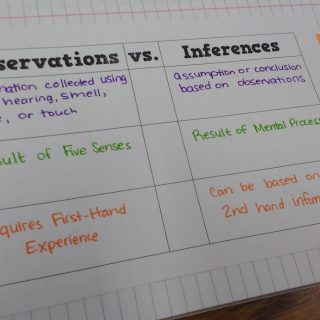 servations vs. Inferences
mation collected using
hearing, smell,
, or touch
assumption or conclusion
based on observations
sult of Five Senses
Result of Mental Process
quires First-Hand
Experience
Can be based on
2nd hand inform